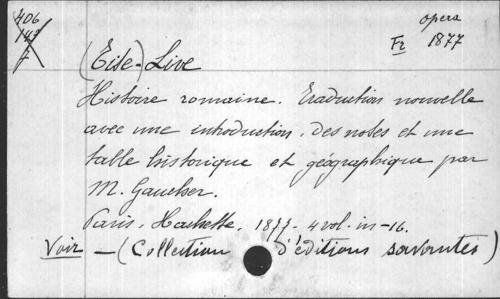 406
147
opera
Fr 1877
(Tite-) Live
Histoire romaine. Traduction nouvelle
avec une introduction. Des notes et une
table historique et géographique par
M. Gaucher.
Paris. Hachette. 1877. 4 vol. in-16.
Voir — (Collection d'éditions savantes)